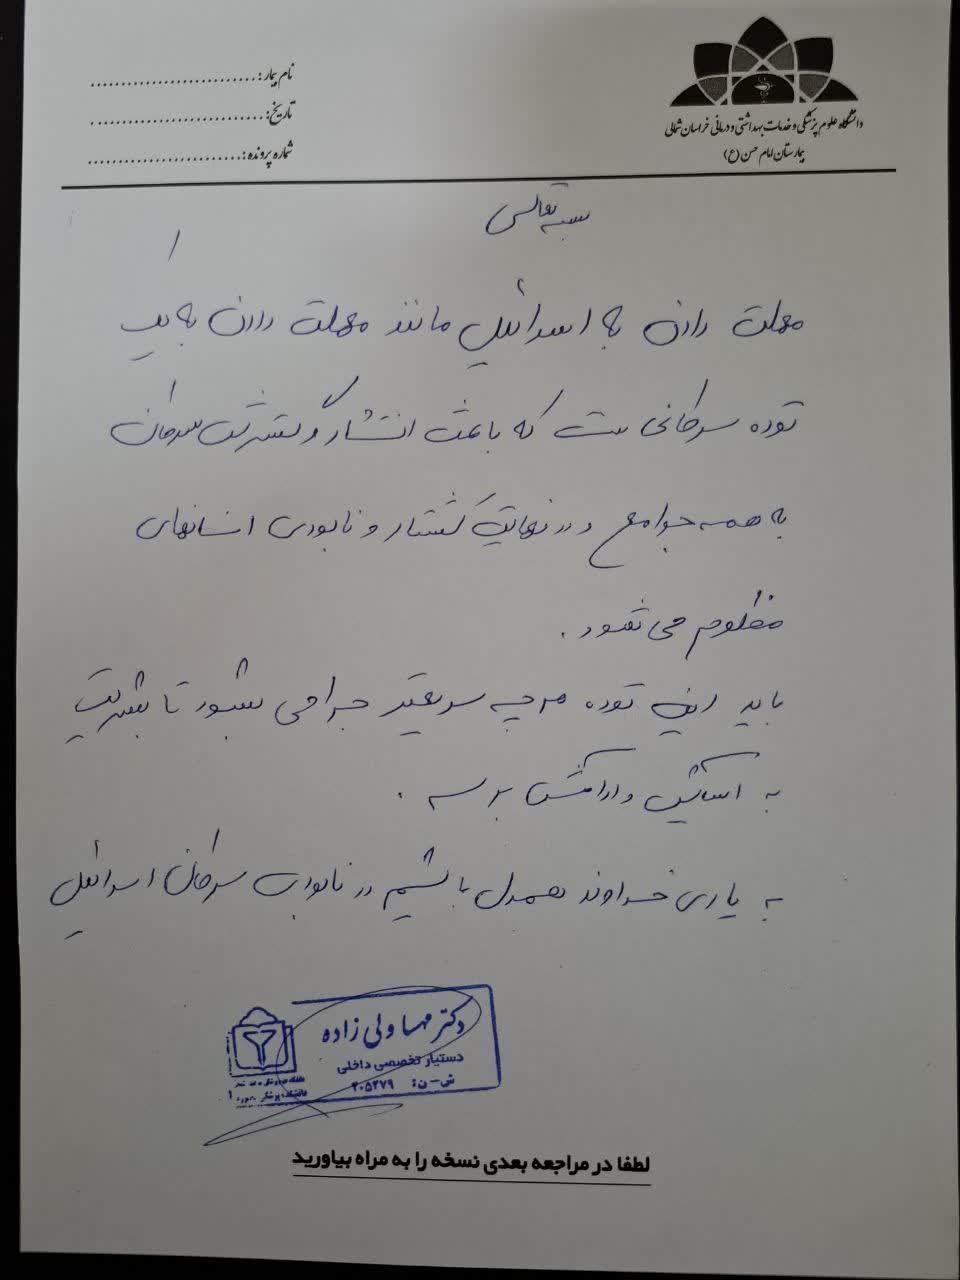 دانشگاه علوم پزشکی و خدمات بهداشتی و درمانی خراسان شمالی
بیمارستان امام حسن (ع)
نام بیمار:
تاریخ:
شماره پرونده:
بسمه تعالی
مهلت دادن به اسرائیل مانند مهلت دادن به یک
توده سرطانی ست که باعث انتشار و گسترش سرطان
به همه جوامع و در نهایت کشتار و نابودی انسانهای
مظلوم می شود.
باید این توده هرچه سریعتر جراحی بشود تا بشریت
به آسایش و آرامش برسه.
به یاری خداوند همدل باشیم در نابودی سرطان اسرائیل
دکتر مهسا ولی زاده
دستیار تخصصی داخلی
ش-ن: ۲۰۵۲۷۹
لطفا در مراجعه بعدی نسخه را به مراه بیاورید